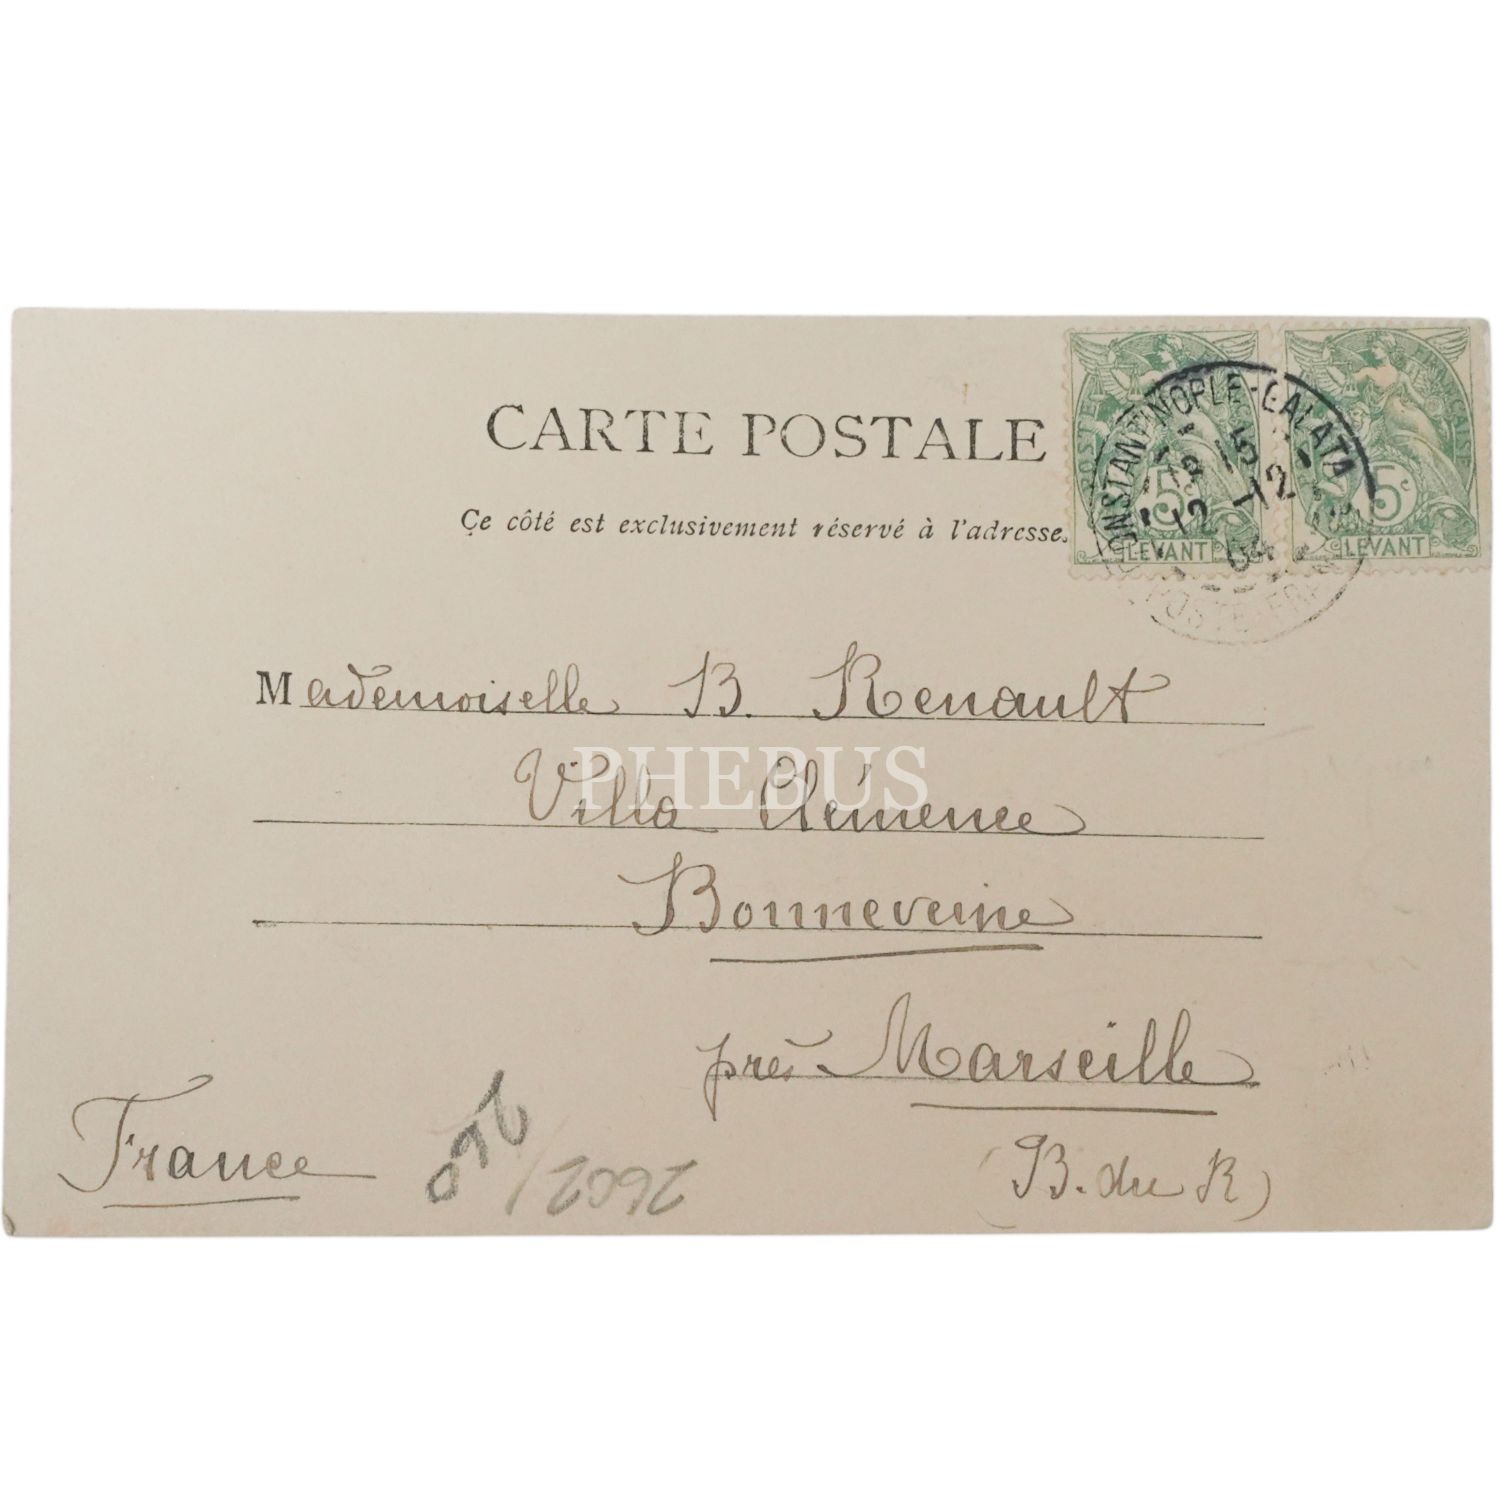 CARTE POSTALE
Ce côté est exclusivement réservé à l'adresse.
POSTE FRANÇAISE
5c 5c
LEVANT LEVANT
CONSTANTINOPLE-GALATA
15
12 -12
04
POSTE FRANÇ
Mademoiselle B. Renault
Villa Clémence
PHEBUS
Bonneveine
près Marseille
(B. du R)
France
260/2602